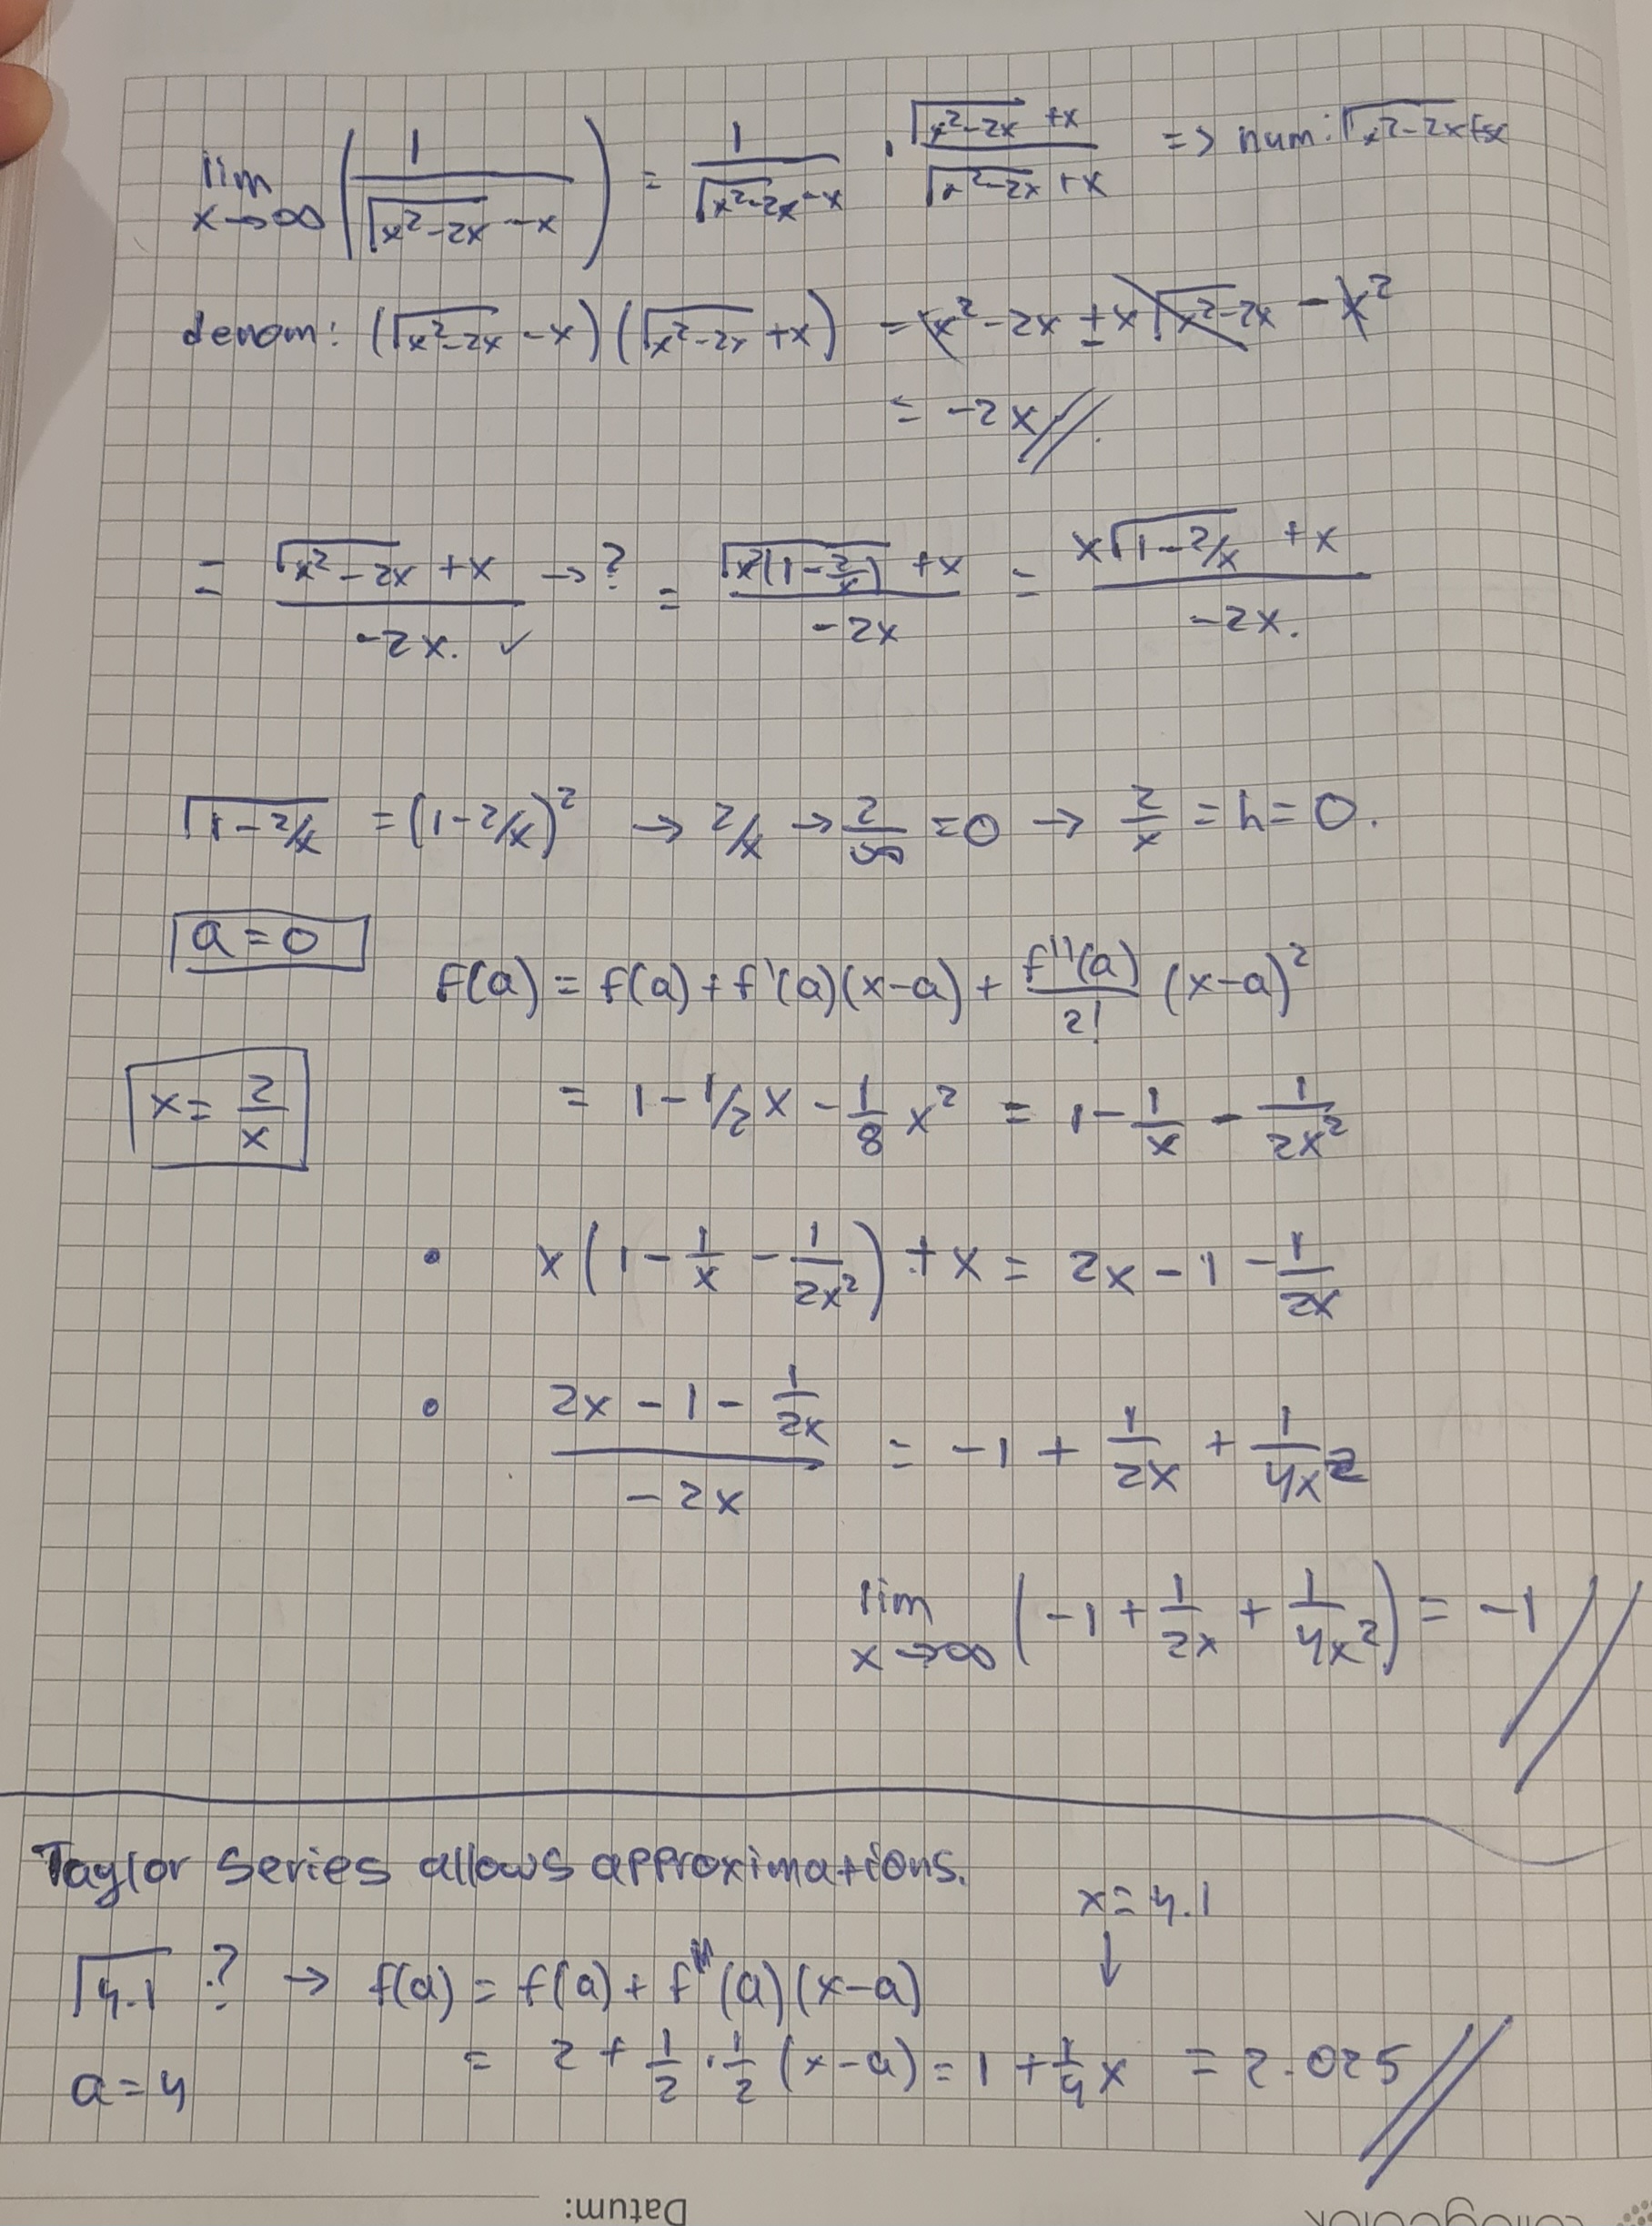 lim x→∞ (1/(√(x²-2x) - x)) = 1/(√(x²-2x) - x) · (√(x²-2x) + x)/(√(x²-2x) + x) => num: √(x²-2x) + x
denom: (√(x²-2x) - x)(√(x²-2x) + x) = x² - 2x ± x√(x²-2x) - x²
= -2x //
= (√(x²-2x) + x)/(-2x.) ✓ → ? = (√(x²(1-2/x)) + x)/(-2x) = (x√(1-2/x) + x)/(-2x.)
√(1-2/x) = (1-2/x)² → 2/x → 2/∞ = 0 → 2/x = h = 0.
a = 0
f(a) = f(a) + f'(a)(x-a) + f''(a)/2! (x-a)²
x = 2/x
= 1 - 1/2 x - 1/8 x² = 1 - 1/x - 1/(2x²)
• x(1 - 1/x - 1/(2x²)) + x = 2x - 1 - 1/(2x)
• (2x - 1 - 1/(2x))/(-2x) = -1 + 1/(2x) + 1/(4x²)
lim x→∞ (-1 + 1/(2x) + 1/(4x²)) = -1 //
Taylor series allows approximations.
x = 4.1
↓
√4.1 ? → f(a) = f(a) + f'(a)(x-a)
a = 4
= 2 + 1/2 · 1/2 (x-a) = 1 + 1/4 x = 2.025 //
Datum: